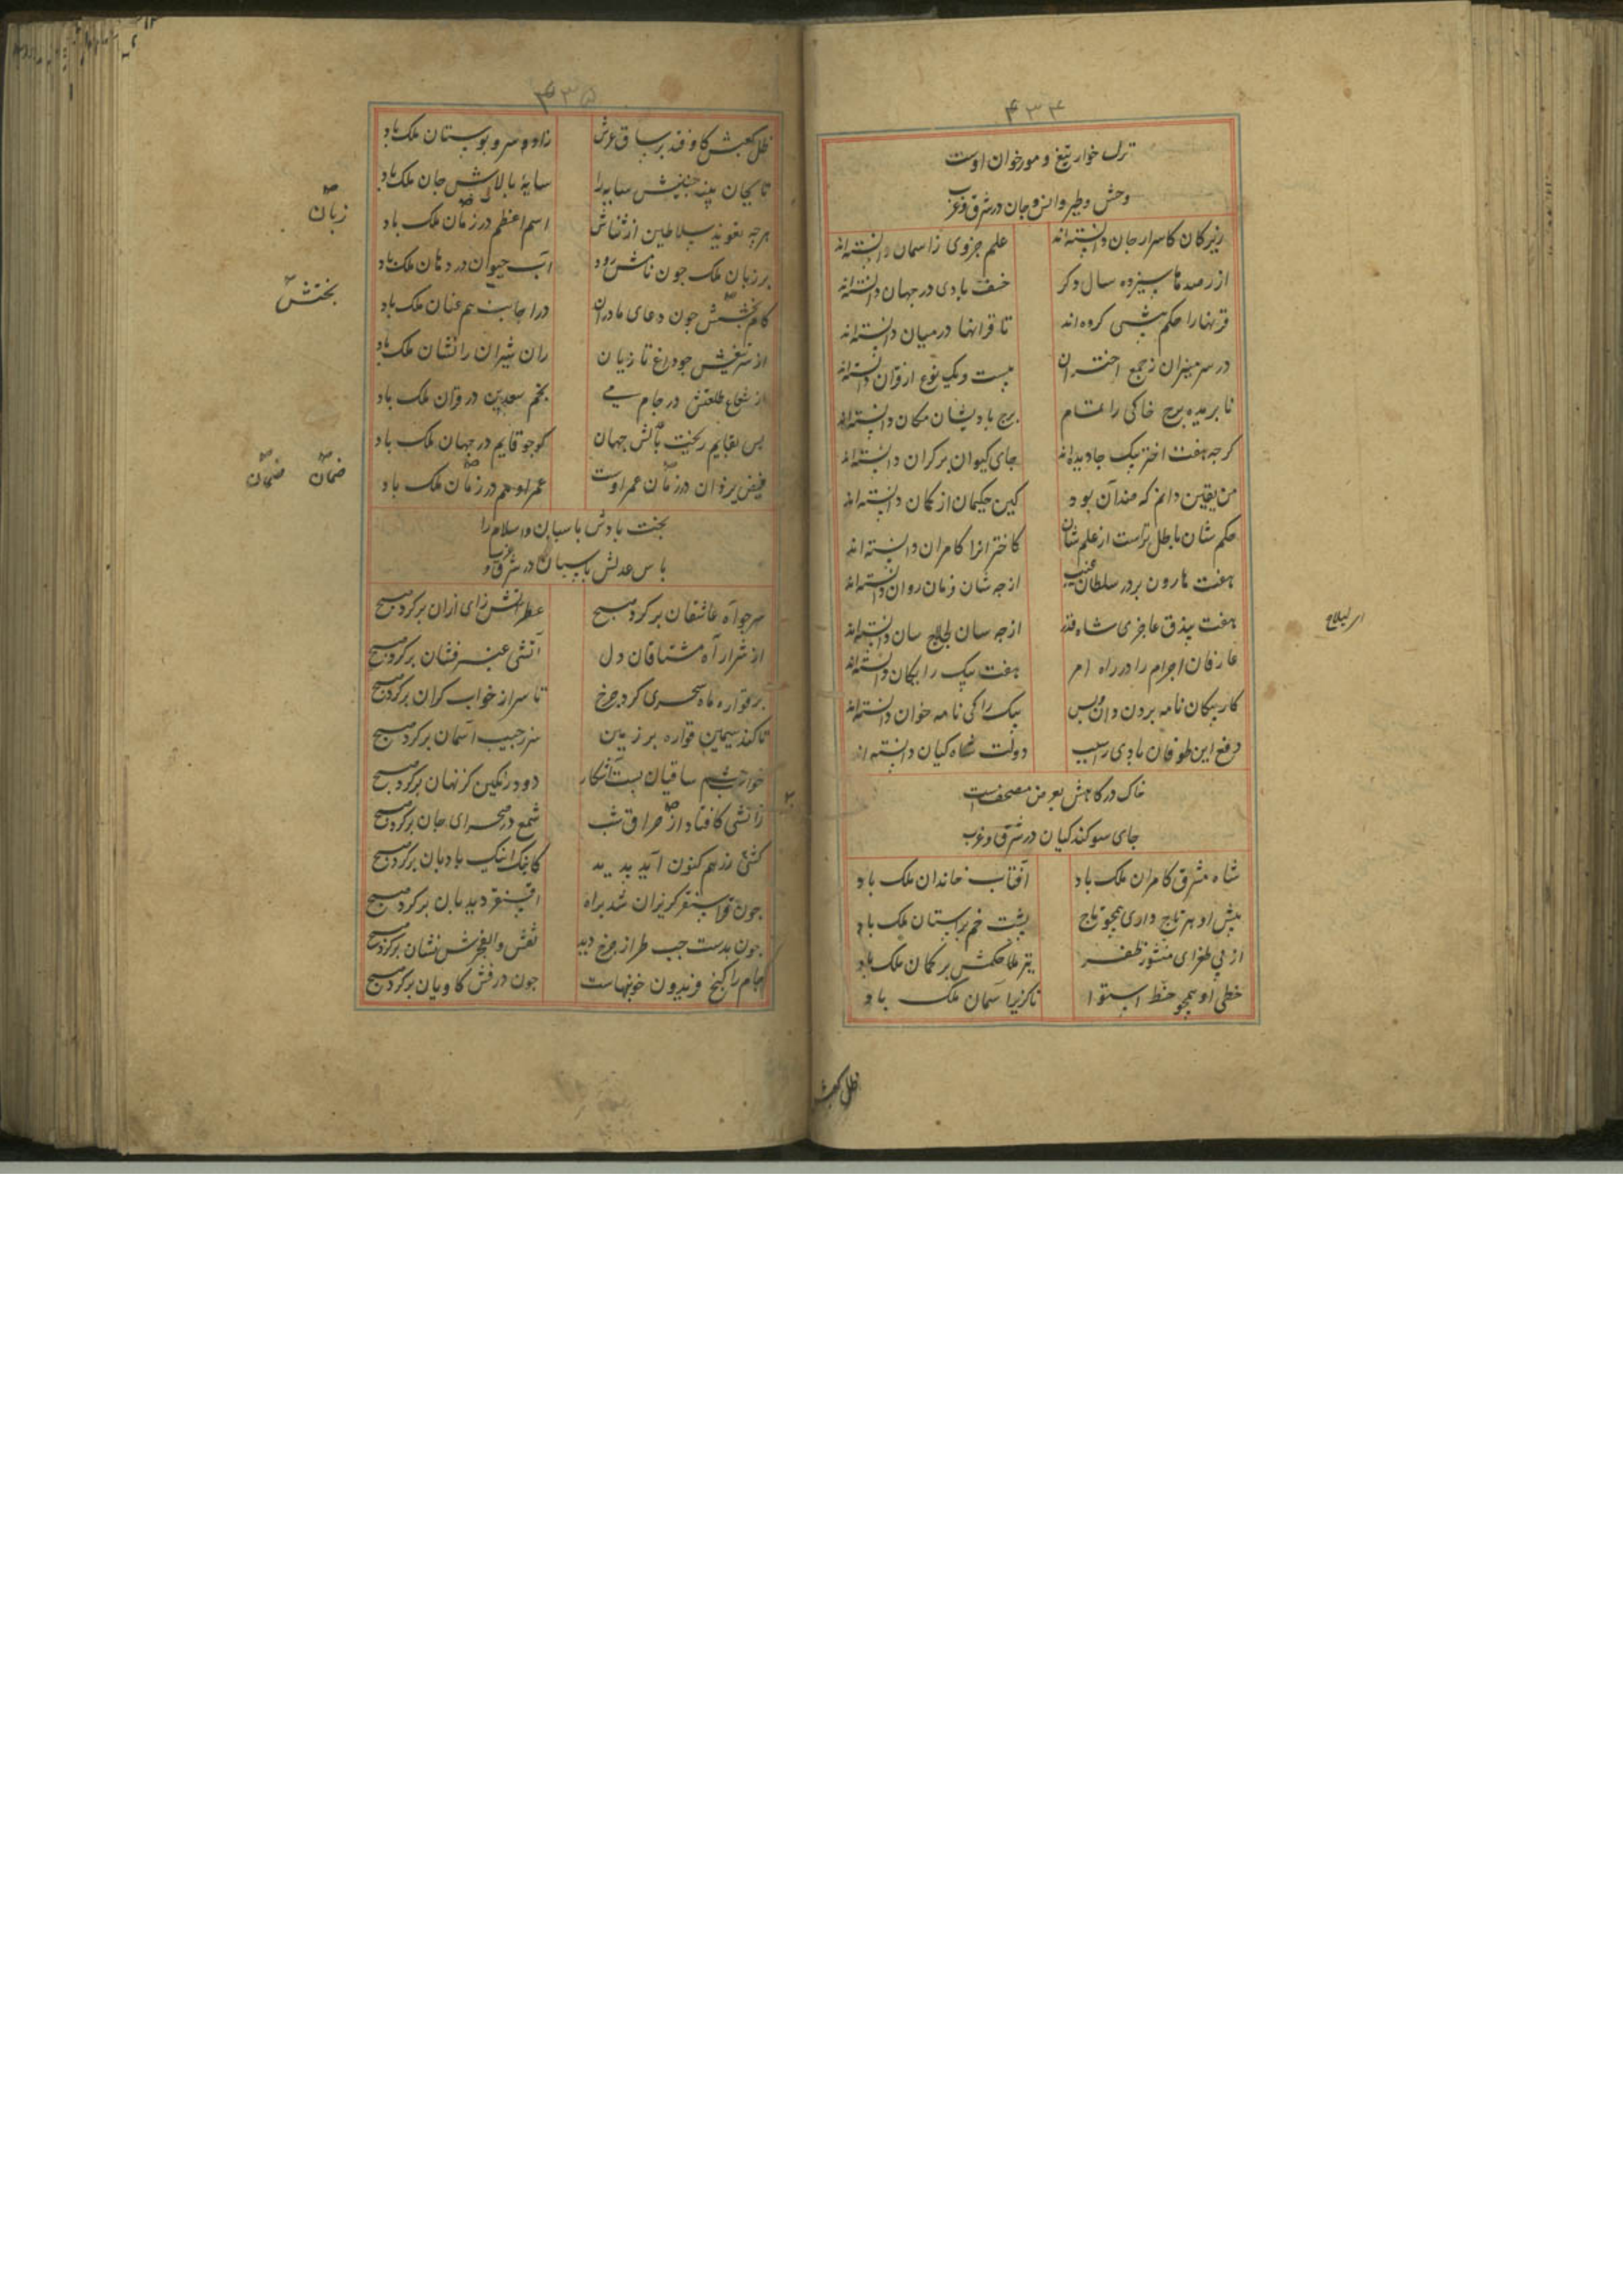 ۴۳۴
ترک خوار تیغ و مور خوان اوست
وحش و طیر و انس و جان در شرق و غرب
زیرکان کاسرار جان دانسته‌اند علم جزوی ز آسمان دانسته‌اند
از رصدها سیزده سال دگر خسف بادی در جهان دانسته‌اند
قرنها را حکم پیشی کرده‌اند تا قرانها در میان دانسته‌اند
در سر میزان ز جمع اختران بیست و یک نوع از قران دانسته‌اند
نابریده برج خاکی را تمام برج بادیشان مکان دانسته‌اند
کرجه هفت اختر بیک جا دیده‌اند جای کیوان بر کران دانسته‌اند
من یقین دانم که ضد آن بود کین حکیمان از کمان دانسته‌اند
حکم شان باطل ترست از علم شان کاخترانرا کامران دانسته‌اند
هفت هارون بر در سلطان غیب از جه شان فرمان روان دانسته‌اند
هفت بیذق عاجزی شاه قدر از جه سان لجلاج سان دانسته‌اند
عارفان اجرام را در راه امر هفت پیک رایکان دانسته‌اند
کار پیکان نامه بردن دان و بس پیک را کی نامه خوان دانسته‌اند
دفع این طوفان بادی را سبب دولت شاه کیان دانسته‌اند
خاک درکاهش بعرض مصحفست
جای سوکند کیان در شرق و غرب
شاه مشرق کامران ملک باد آفتاب خاندان ملک باد
پیش او هر تاج داری همجو تاج پشت خم بر استان ملک باد
از پی طغرای منشور ظفر تیر حکمش بر کمان ملک باد
خطی او همجو خط استوا ناکزیر اسمان ملک باد
ظل کعبش
۴۳۵
ظل کعبش کاوفتد بر ساق عرش زاده سرو بوستان ملک باد
تا بجان بیند جنبش سایه را سایه بالاش جان ملک باد
هرجه تعویذ سلاطین از ثناش اسم اعظم در زمان ملک باد
زبان
بر زبان ملک جون نامش رود آب حیوان در دهان ملک باد
کام بخشش جون دعای مادران در اجابت هم عنان ملک باد
بخشش
از سر تیغش جو داغ تازیان ران شیران را نشان ملک باد
از شعاع طلعتش در جام می نجم سعدین در قران ملک باد
بس بقایم ریخت بالش جهان کوجو قایم در جهان ملک باد
فیض یزدان در زمان عمر اوست عمر او هم در زمان ملک باد
ضمان ضمان
بخت بادش پاسبان و اسلام را
پاس عدلش پاسبان در شرق و غرب
سر جو آه عاشقان بر کرد صبح عطر آتش زای ازان بر کرد صبح
از شرار آه مشتاقان دل آتشی عنبر فشان بر کرد صبح
بر قواره ماه سحری کرد جرخ تا سر از خواب کران بر کرد صبح
تا کند سیمین قواره بر زمین سر ز جیب آسمان بر کرد صبح
خواب جشم ساقیان بست آشکار دود رنکین کز نهان بر کرد صبح
ز آتشی کافتاد از حراق شب شمع در صحرای جان بر کرد صبح
کشتی زر هم کنون آید پدید کاینک اینک بادبان بر کرد صبح
جون قراسنقر کریزان شد براه اقسنقر دیدبان بر کرد صبح
جون بدست جب طراز جرخ دید نقش والفجرش نشان بر کرد صبح
جام را کنج فریدون خونبهاست جون درفش کاویان بر کرد صبح